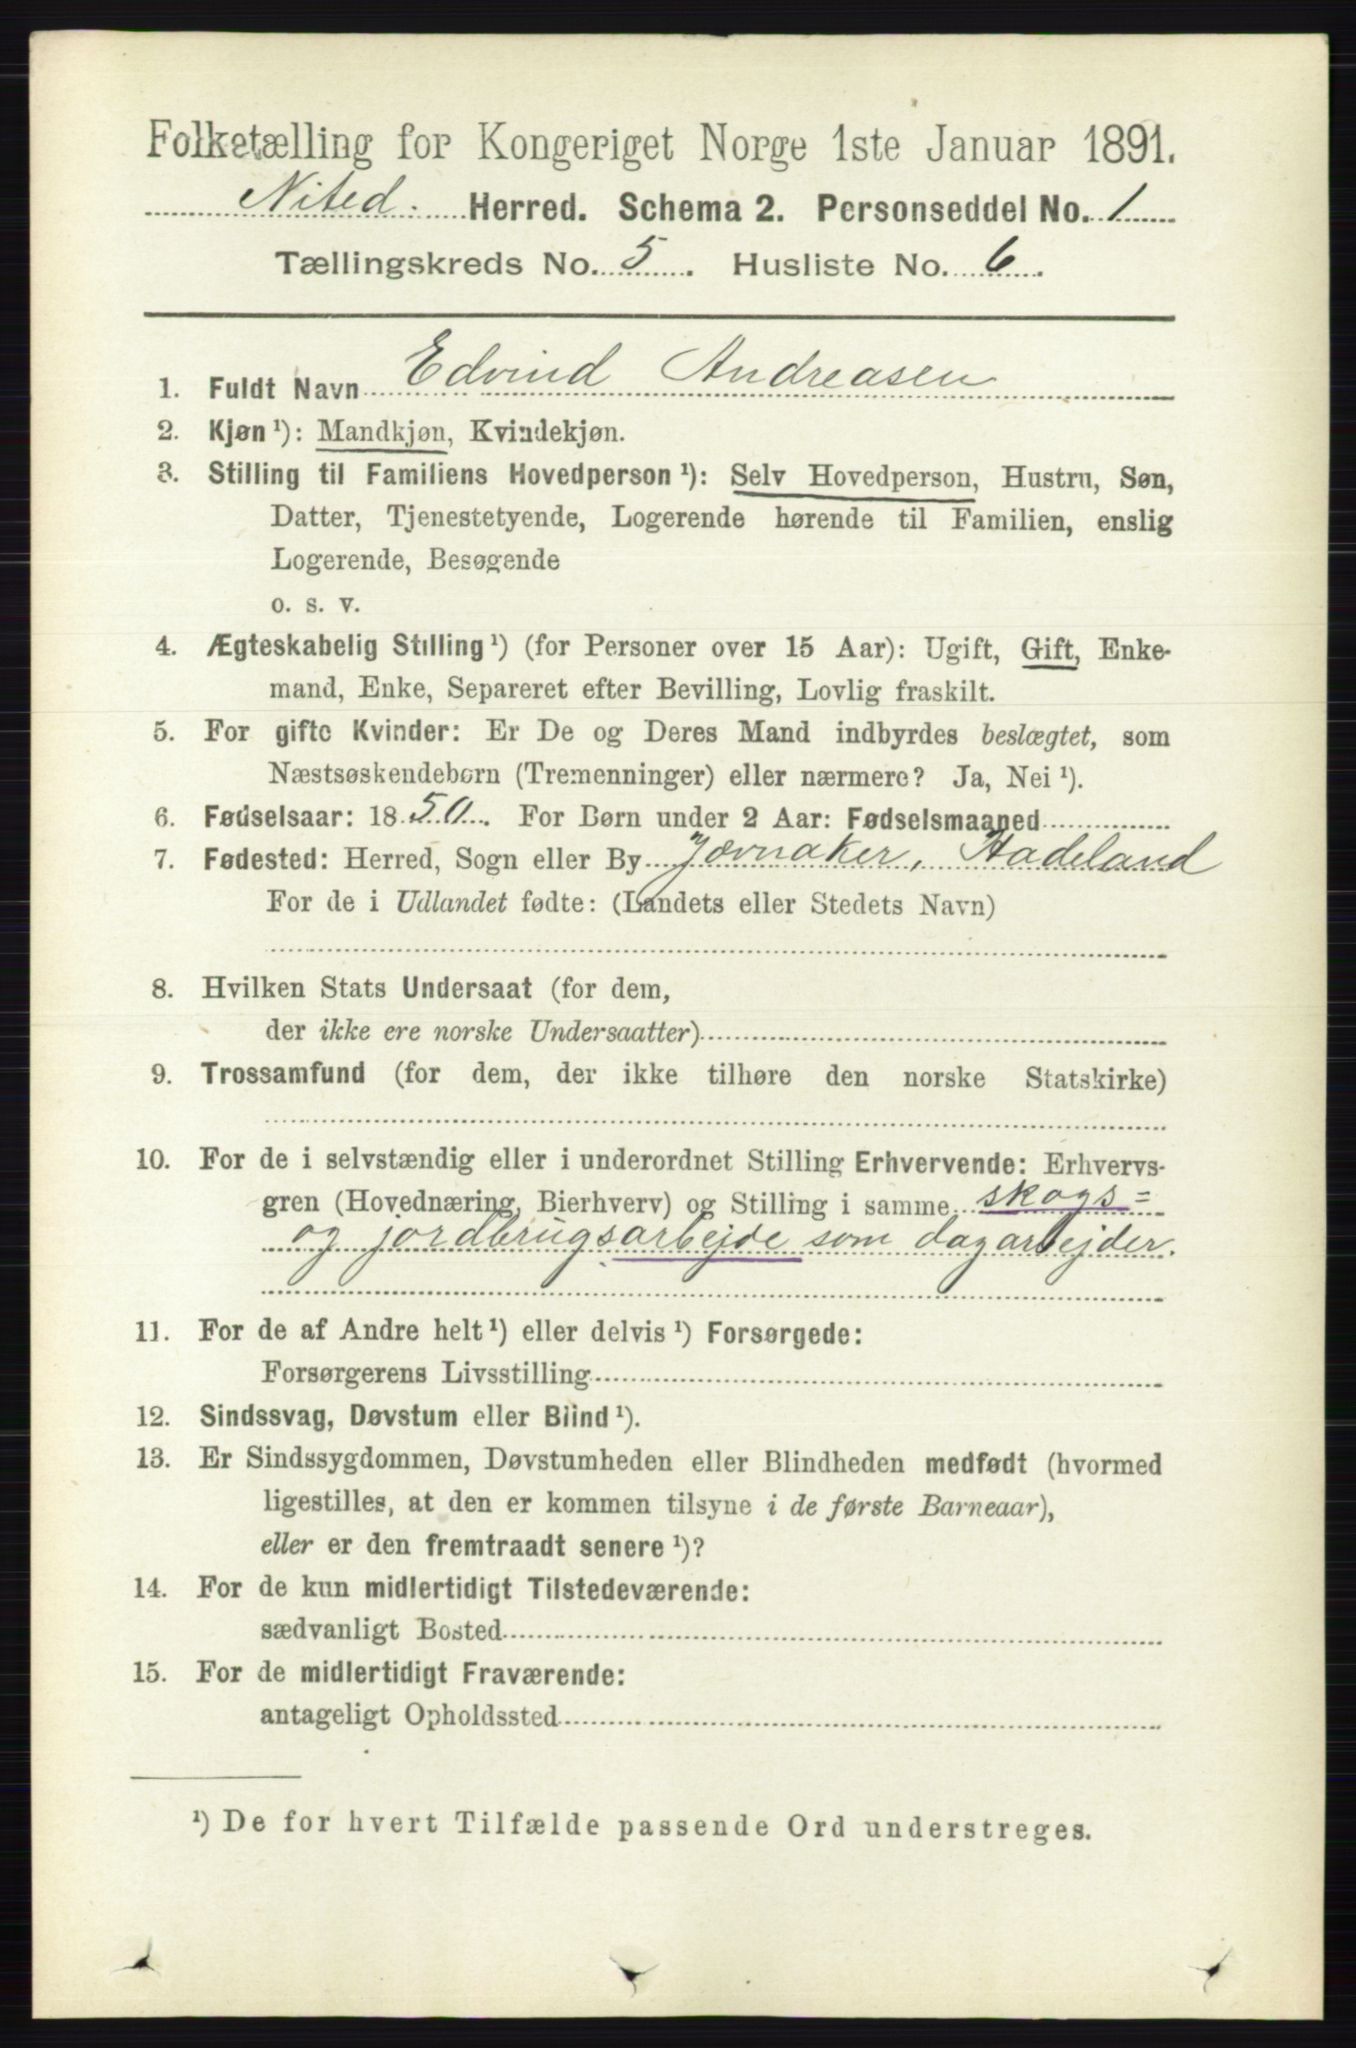 Folketælling for Kongeriget Norge 1ste Januar 1891.
Nited. Herred. Schema 2. Personseddel No. 1
Tællingskreds No. 5. Husliste No. 6.
1. Fuldt Navn Edvind Andreasen
2. Kjøn ¹): Mandkjøn, Kvindekjøn.
3. Stilling til Familiens Hovedperson ¹): Selv Hovedperson, Hustru, Søn,
Datter, Tjenestetyende, Logerende hørende til Familien, enslig
Logerende, Besøgende
o. s. v.
4. Ægteskabelig Stilling ¹) (for Personer over 15 Aar): Ugift, Gift, Enke-
mand, Enke, Separeret efter Bevilling, Lovlig fraskilt.
5. For gifte Kvinder: Er De og Deres Mand indbyrdes beslægtet, som
Næstsøskendebørn (Tremenninger) eller nærmere? Ja, Nei ¹).
6. Fødselsaar: 1850. For Børn under 2 Aar: Fødselsmaaned
7. Fødested: Herred, Sogn eller By Jævnaker, Hadeland
For de i Udlandet fødte: (Landets eller Stedets Navn)
8. Hvilken Stats Undersaat (for dem,
der ikke ere norske Undersaatter)
9. Trossamfund (for dem, der ikke tilhøre den norske Statskirke)
10. For de i selvstændig eller i underordnet Stilling Erhvervende: Erhvervs-
gren (Hovednæring, Bierhverv) og Stilling i samme skogs=
og jordbrugsarbejde som dagarbejder.
11. For de af Andre helt ¹) eller delvis ¹) Forsørgede:
Forsørgerens Livsstilling
12. Sindssvag, Døvstum eller Blind ¹).
13. Er Sindssygdommen, Døvstumheden eller Blindheden medfødt (hvormed
ligestilles, at den er kommen tilsyne i de første Barneaar),
eller er den fremtraadt senere ¹)?
14. For de kun midlertidigt Tilstedeværende:
sædvanligt Bosted
15. For de midlertidigt Fraværende:
antageligt Opholdssted
¹) De for hvert Tilfælde passende Ord understreges.